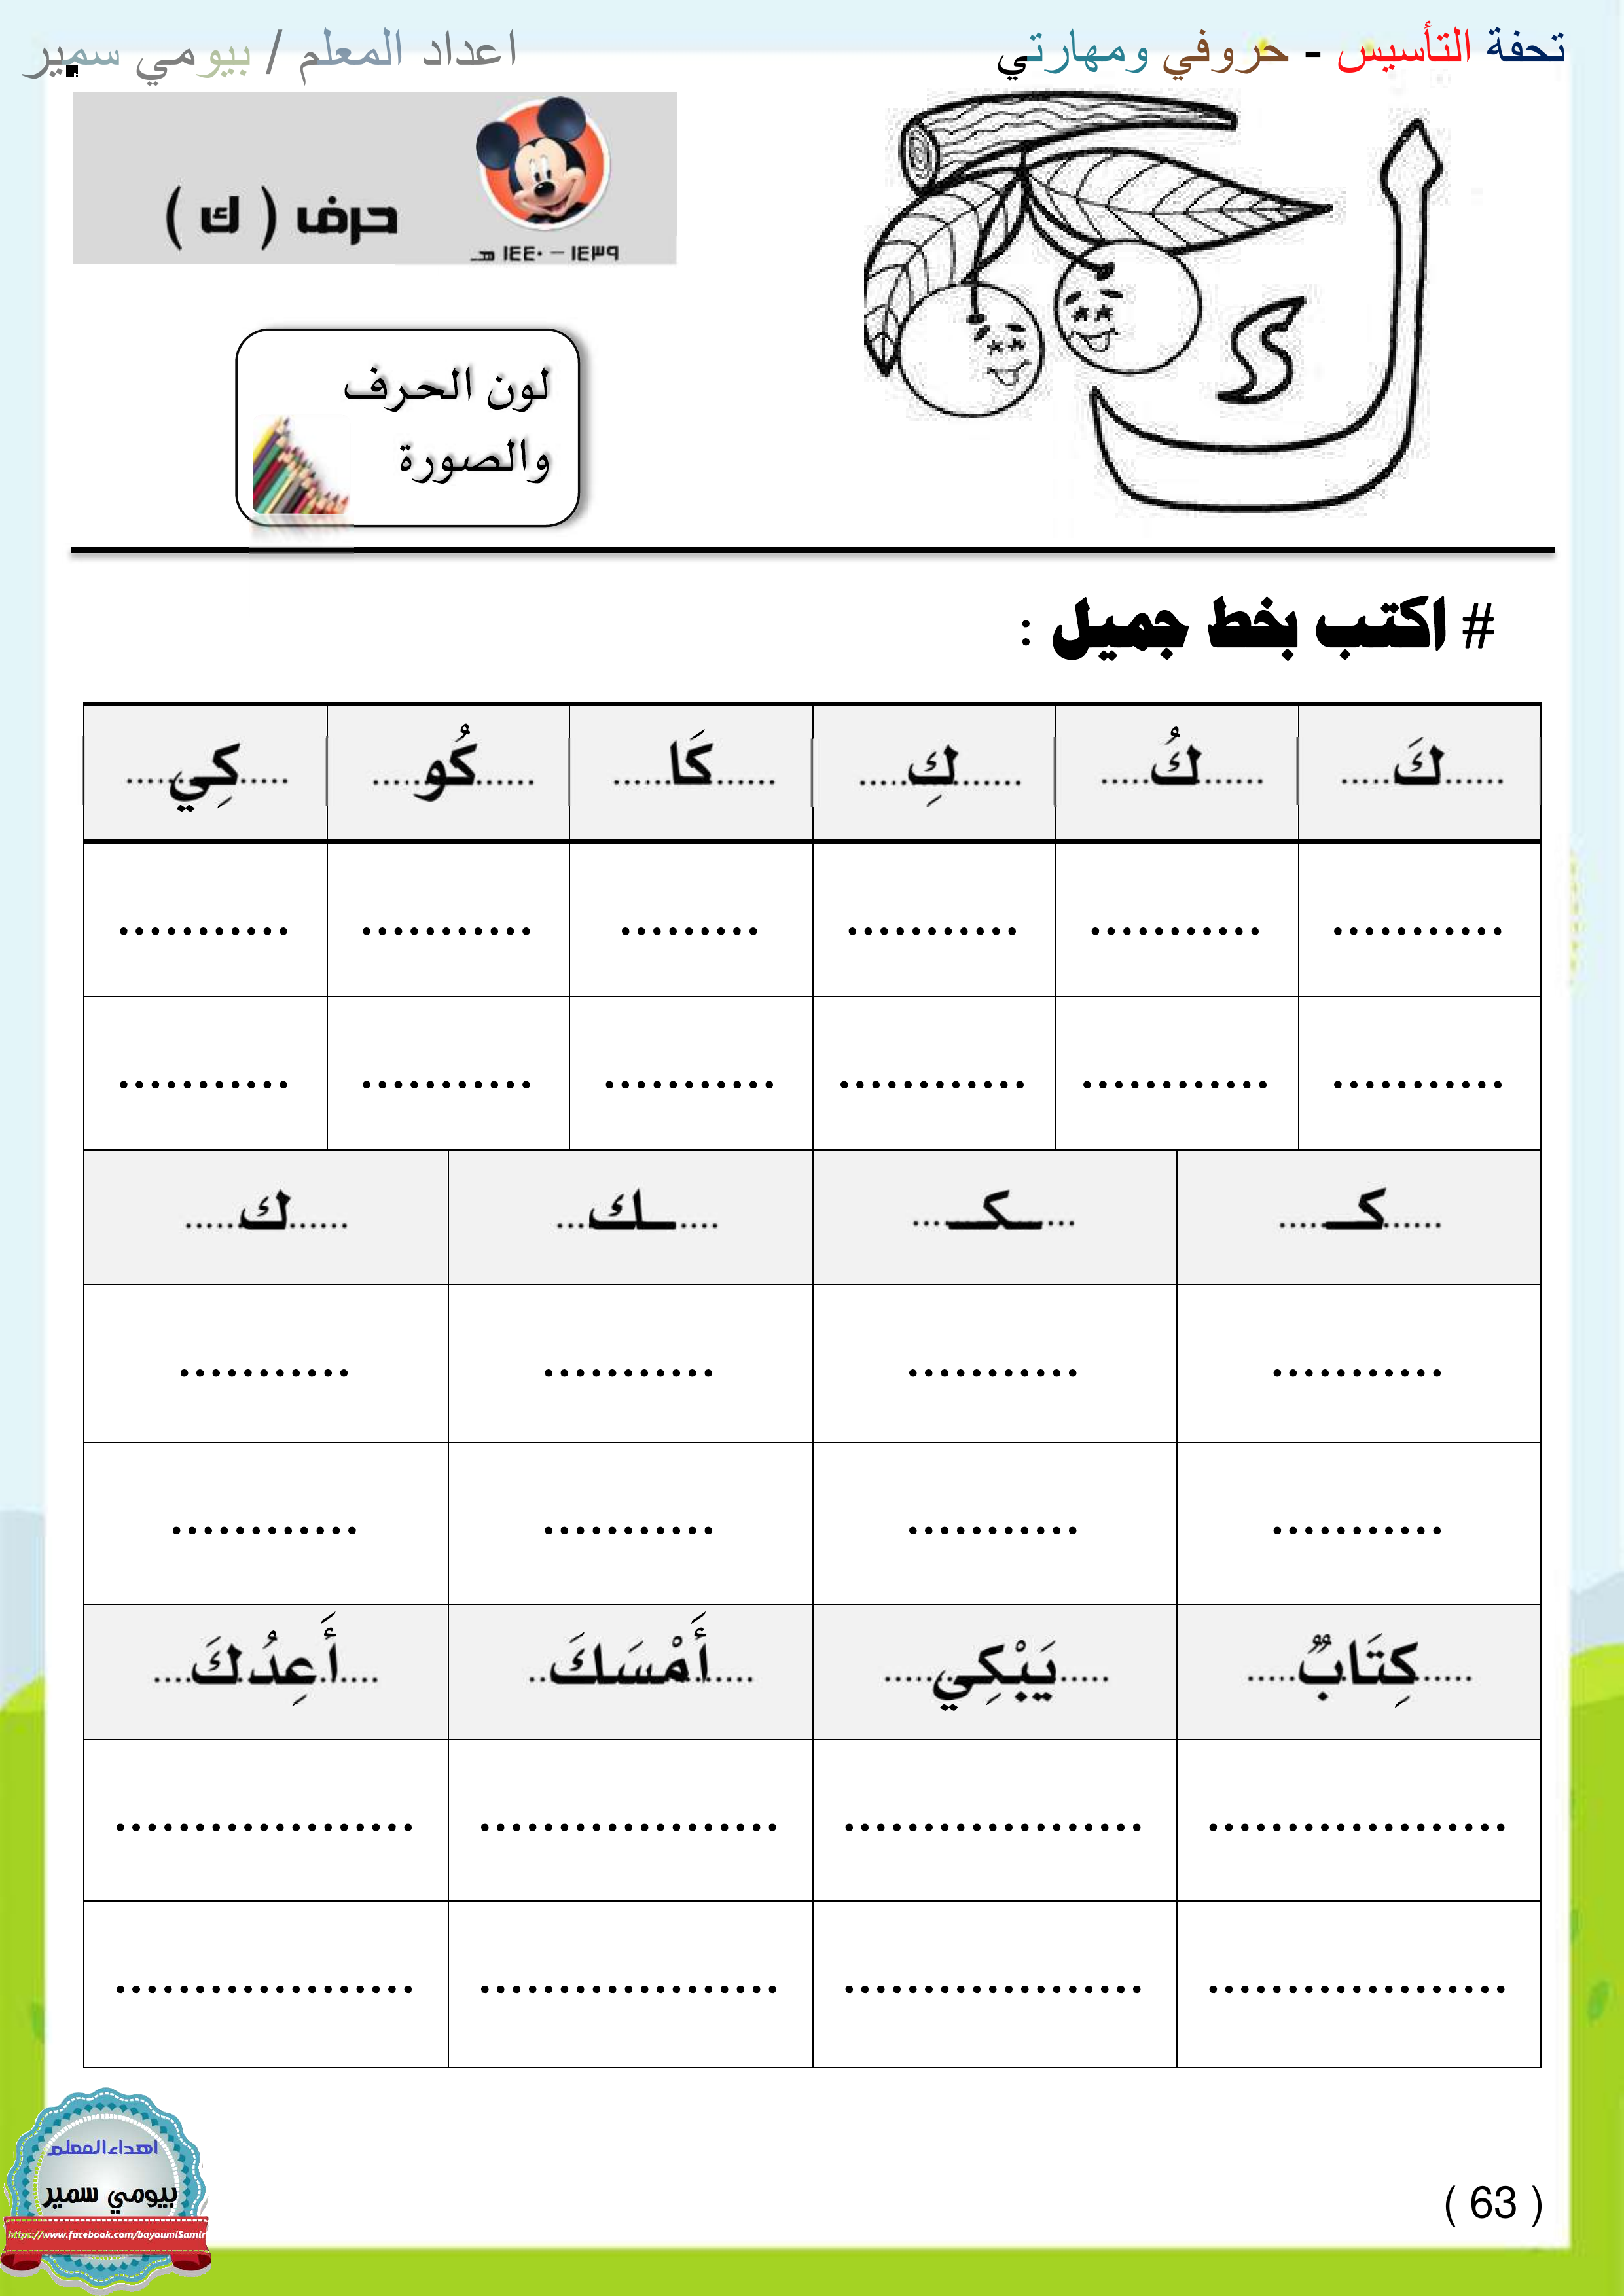 تحفة التأسيس - حروفي ومهارتي
اعداد المعلم / بيومي سمير
ك
حرف ( ك )
١٤٣٩ – ١٤٤٠ هـ
لون الحرف
والصورة
# اكتب بخط جميل :
......كَ..... ......كُ..... ......كِ..... ......كَا...... ......كُو..... .....كِي.....
........... ........... ........... ......... ........... ...........
........... ............ ............ ........... ........... ...........
......كـ..... ...ـكـ... ....ـك... ......ك.....
........... ........... ........... ...........
........... ........... ........... ............
.....كِتَابٌ..... .....يَبْكِي..... ....أَمْسَكَ.. ....أَعِدُكَ....
................... ................... ................... ...................
................... ................... ................... ...................
اهداء المعلم
بيومي سمير
https://www.facebook.com/bayoumiSamir
( 63 )